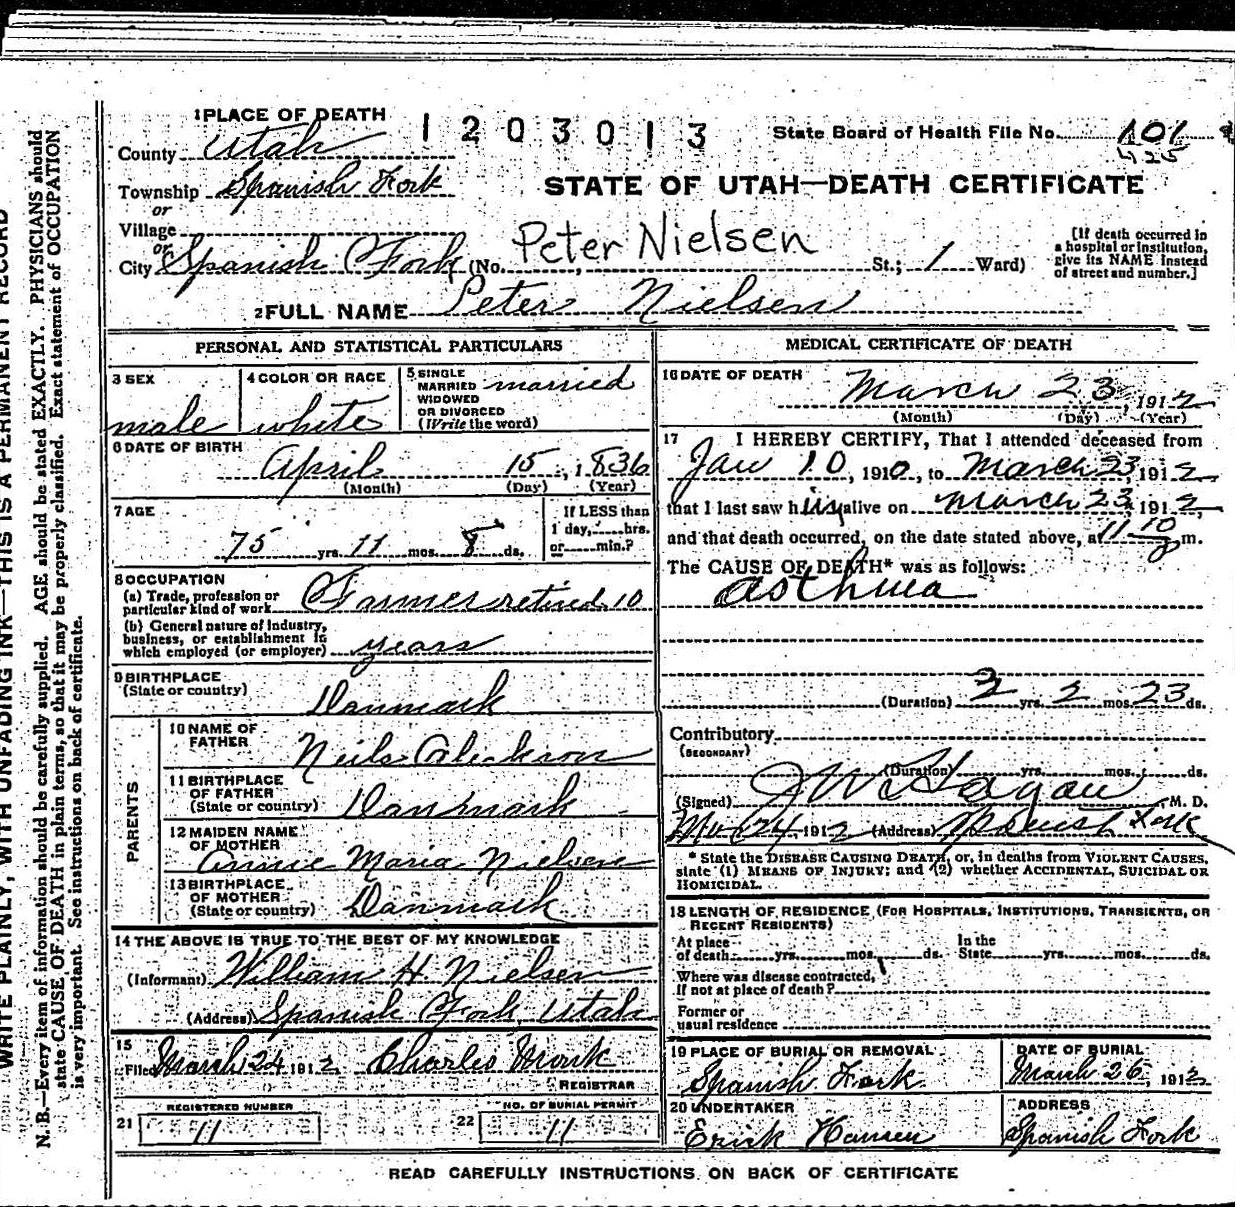 WRITE PLAINLY, WITH UNFADING INK—THIS IS A PERMANENT RECORD
N. B.—Every item of information should be carefully supplied. AGE should be stated EXACTLY. PHYSICIANS should
state CAUSE OF DEATH in plain terms, so that it may be properly classified. Exact statement of OCCUPATION
is very important. See instructions on back of certificate.
1 PLACE OF DEATH
1203013
State Board of Health File No. 101
425
County Utah
Township Spanish Fork
STATE OF UTAH—DEATH CERTIFICATE
or
Village
or
City Spanish Fork (No. Peter Nielsen St.; 1 Ward)
[If death occurred in
a hospital or institution,
give its NAME instead
of street and number.]
2 FULL NAME Peter Nielsen
PERSONAL AND STATISTICAL PARTICULARS
3 SEX
male
4 COLOR OR RACE
white
5 SINGLE
MARRIED
WIDOWED
OR DIVORCED
(Write the word)
married
6 DATE OF BIRTH
April 15, 1836
(Month) (Day) (Year)
7 AGE
75 yrs. 11 mos. 8 ds.
If LESS than
1 day, hrs.
or min.?
8 OCCUPATION
(a) Trade, profession or
particular kind of work Farmer retired 10
(b) General nature of industry,
business, or establishment in
which employed (or employer) years
9 BIRTHPLACE
(State or country)
Danmark
PARENTS
10 NAME OF
FATHER
Neils
11 BIRTHPLACE
OF FATHER
(State or country) Danmark
12 MAIDEN NAME
OF MOTHER
Annie Maria Nielsen
13 BIRTHPLACE
OF MOTHER
(State or country) Danmark
14 THE ABOVE IS TRUE TO THE BEST OF MY KNOWLEDGE
(Informant) William H. Nielsen
(Address) Spanish Fork, Utah
15
Filed March 24 1912 Charles Monk
REGISTRAR
REGISTERED NUMBER
21 11
NO. OF BURIAL PERMIT
22 11
MEDICAL CERTIFICATE OF DEATH
16 DATE OF DEATH
March 23, 1912
(Month) (Day) (Year)
17 I HEREBY CERTIFY, That I attended deceased from
Jan 10, 1910, to March 23, 1912
that I last saw him alive on March 23, 1912,
and that death occurred, on the date stated above, at 11 10 m.
The CAUSE OF DEATH* was as follows:
asthma
(Duration) 2 yrs. 2 mos. 23 ds.
Contributory
(SECONDARY)
(Duration) yrs. mos. ds.
(Signed) J W Hagan M. D.
Mar 24 1912 (Address) Spanish Fork
* State the DISEASE CAUSING DEATH, or, in deaths from VIOLENT CAUSES,
state (1) MEANS OF INJURY; and (2) whether ACCIDENTAL, SUICIDAL OR
HOMICIDAL.
18 LENGTH OF RESIDENCE (FOR HOSPITALS, INSTITUTIONS, TRANSIENTS, OR
RECENT RESIDENTS)
At place
of death yrs. mos. ds.
In the
State yrs. mos. ds.
Where was disease contracted,
If not at place of death?
Former or
usual residence
19 PLACE OF BURIAL OR REMOVAL
Spanish Fork
DATE OF BURIAL
March 26, 1912
20 UNDERTAKER
Erick Hansen
ADDRESS
Spanish Fork
READ CAREFULLY INSTRUCTIONS ON BACK OF CERTIFICATE